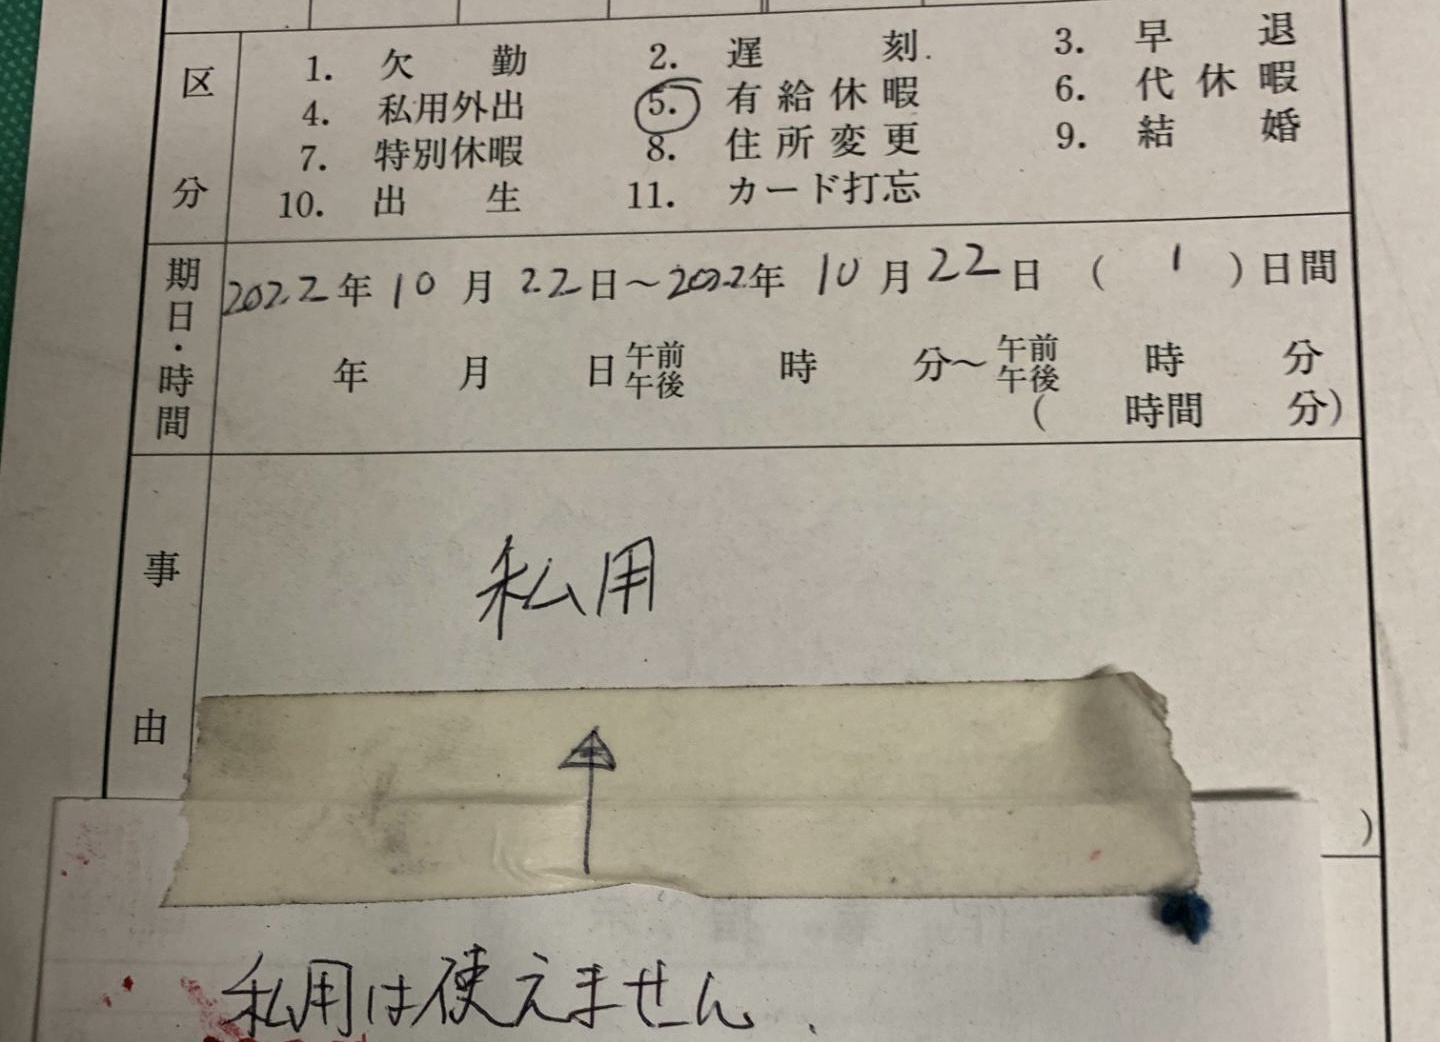 区分
1. 欠勤 2. 遅刻 3. 早退
4. 私用外出 5. 有給休暇 6. 代休暇
7. 特別休暇 8. 住所変更 9. 結婚
10. 出生 11. カード打忘
期日・時間
2022年10月22日〜2022年10月22日(1)日間
年月日午前午後時分〜午前午後時分
(時間分)
事由
私用
)
私用は使えません.